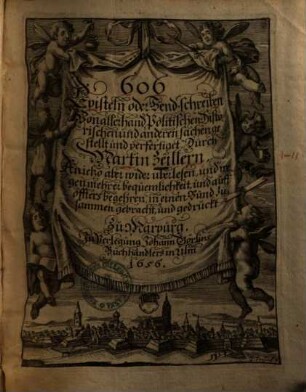 606
Episteln oder Sendschreiben
Von allerhand Politischen Histo-
rischen und anderen sachen ge-
stellt und verfertiget Durch
Martin Zeillern
wider
mehrer bequemlichkeit und auf
öffters begehren, in einen Bund zu-
sammen gebracht, und gedruckt
Zu Marpurg.
In Verlegung Johann Görlins
Buchhändlers in Ulm
1656.